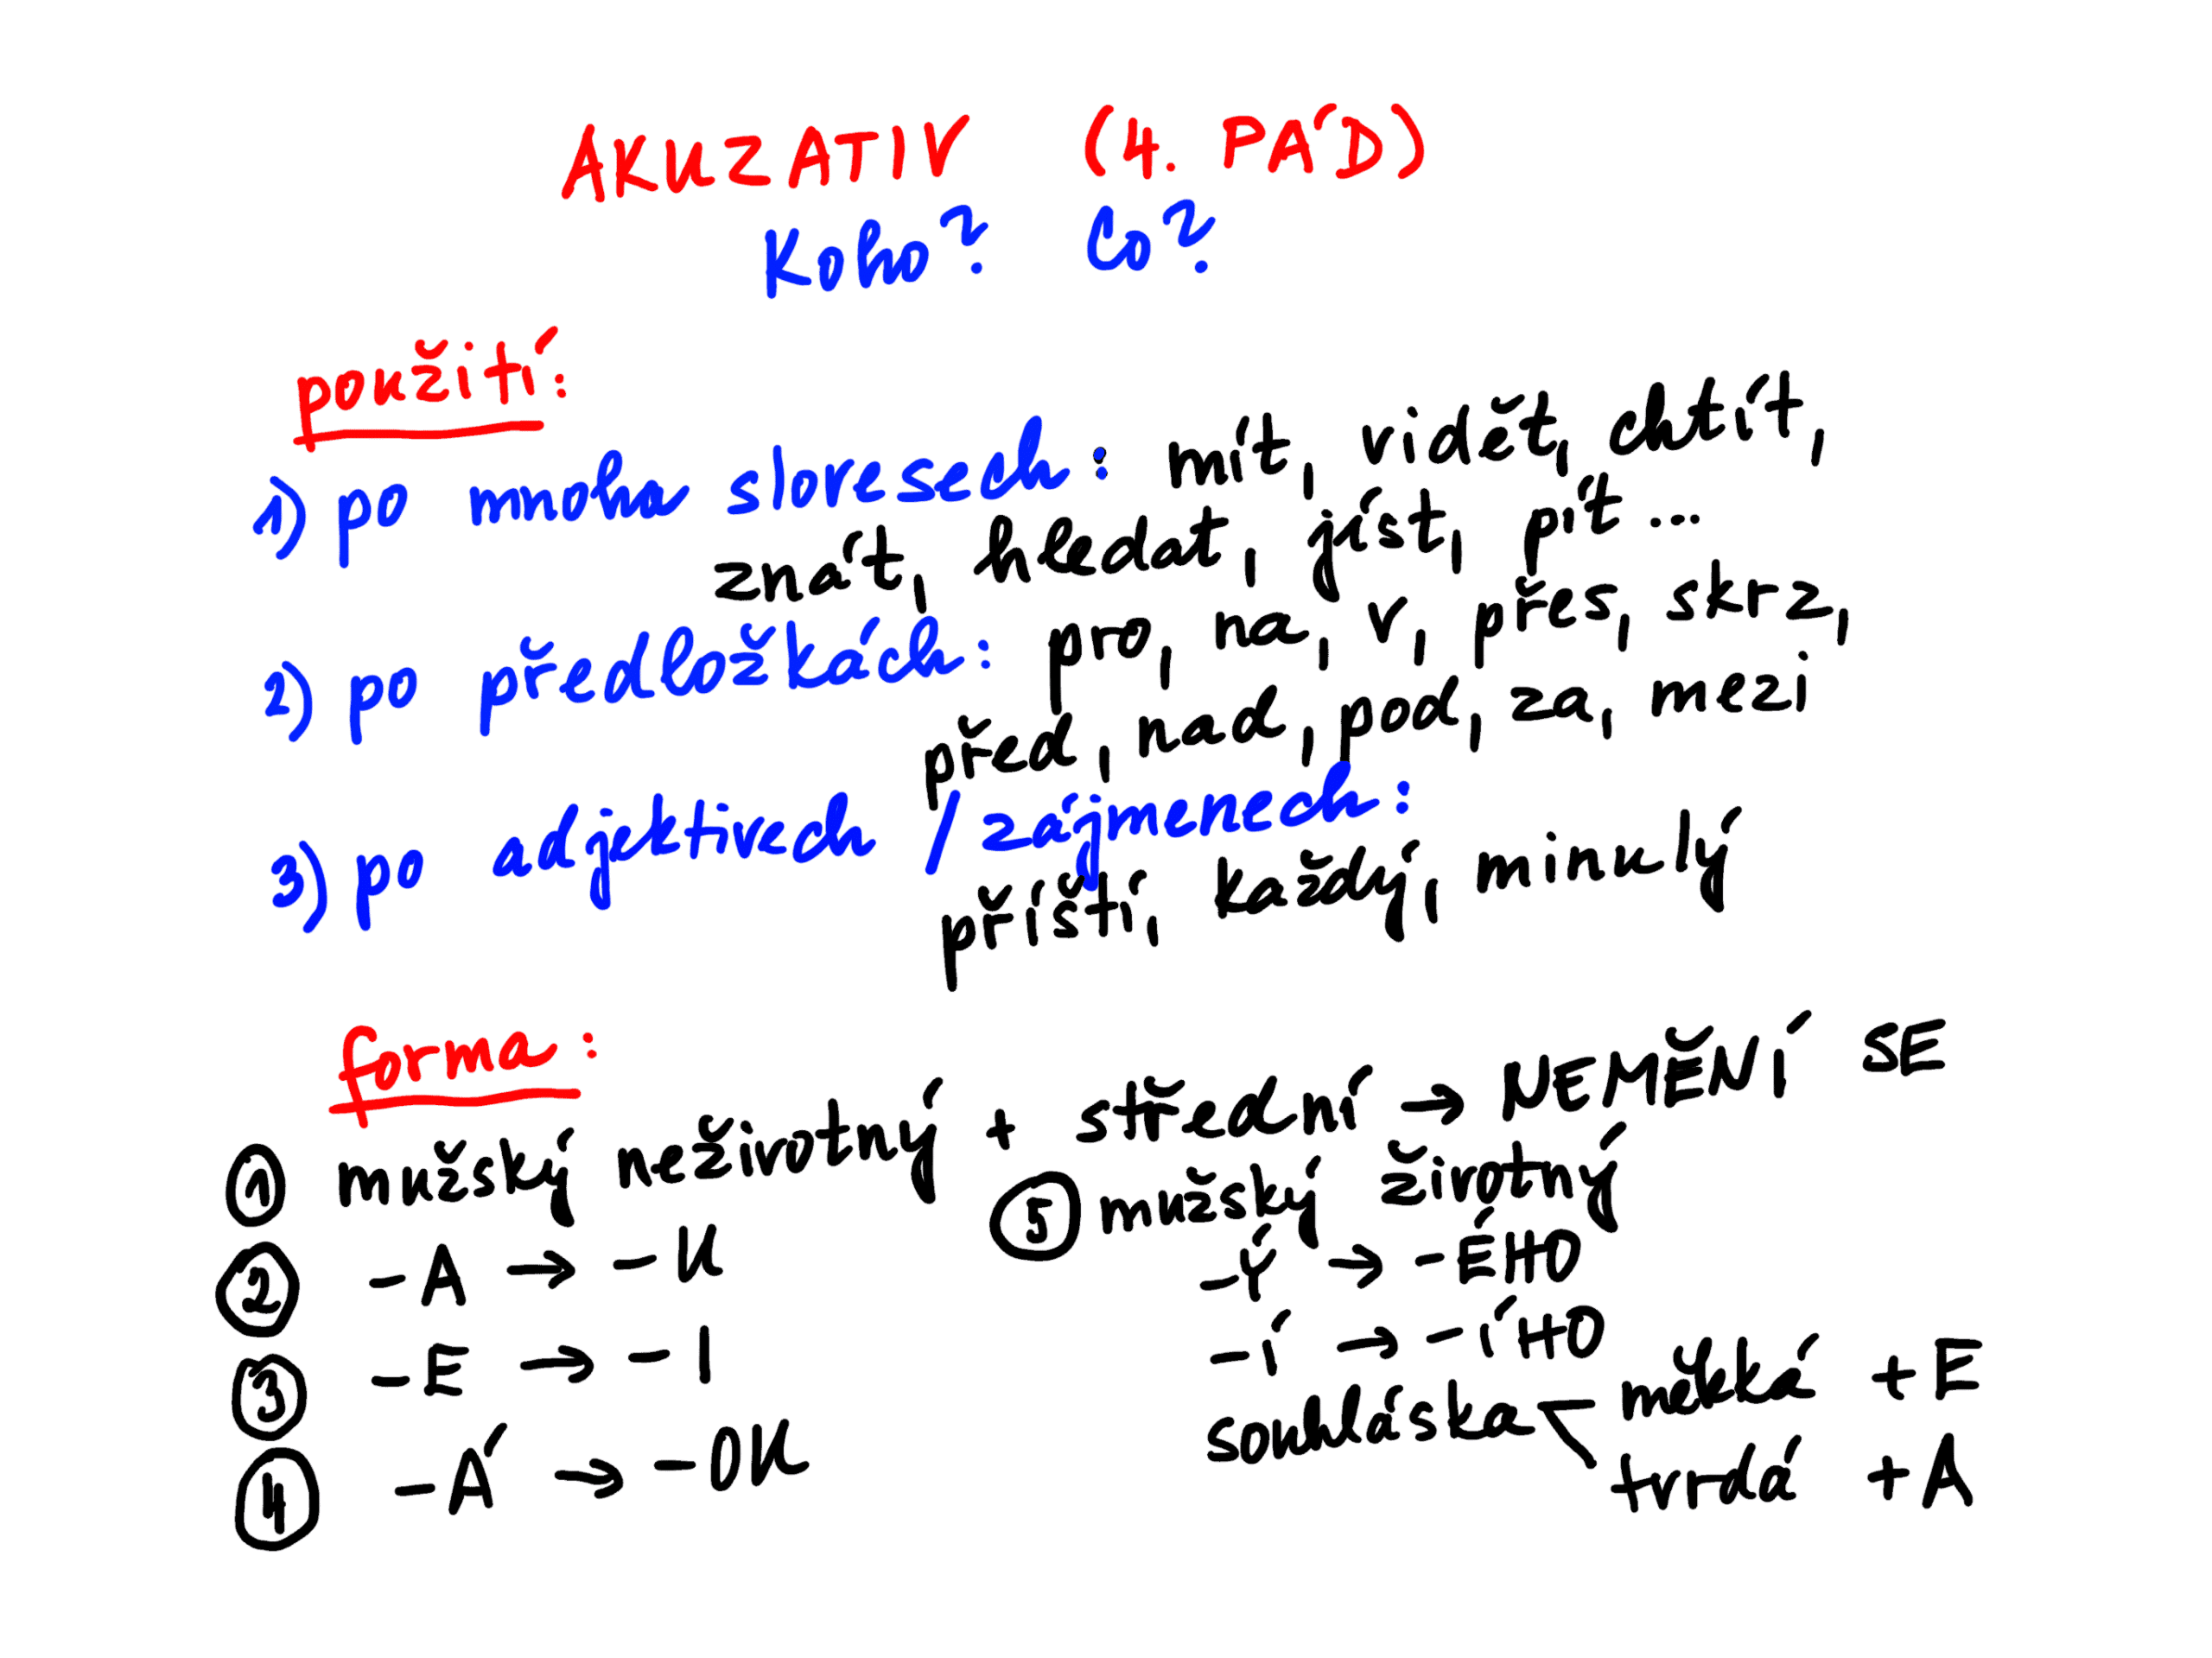 AKUZATIV (4. PÁD)
Koho? Co?
použití:
1) po mnoha slovesech: mít, vidět, chtít,
znát, hledat, jíst, pít...
2) po předložkách: pro, na, v, přes, skrz,
před, nad, pod, za, mezi
3) po adjektivech / zájmenech:
příští, každý, minulý
forma:
1 mužský neživotný + střední → NEMĚNÍ SE
2 -A → -U
3 -E → -I
4 -Á → -OU
5 mužský životný
-Ý → -ÉHO
-Í → -ÍHO
souhláska < měkká +E
tvrdá +A